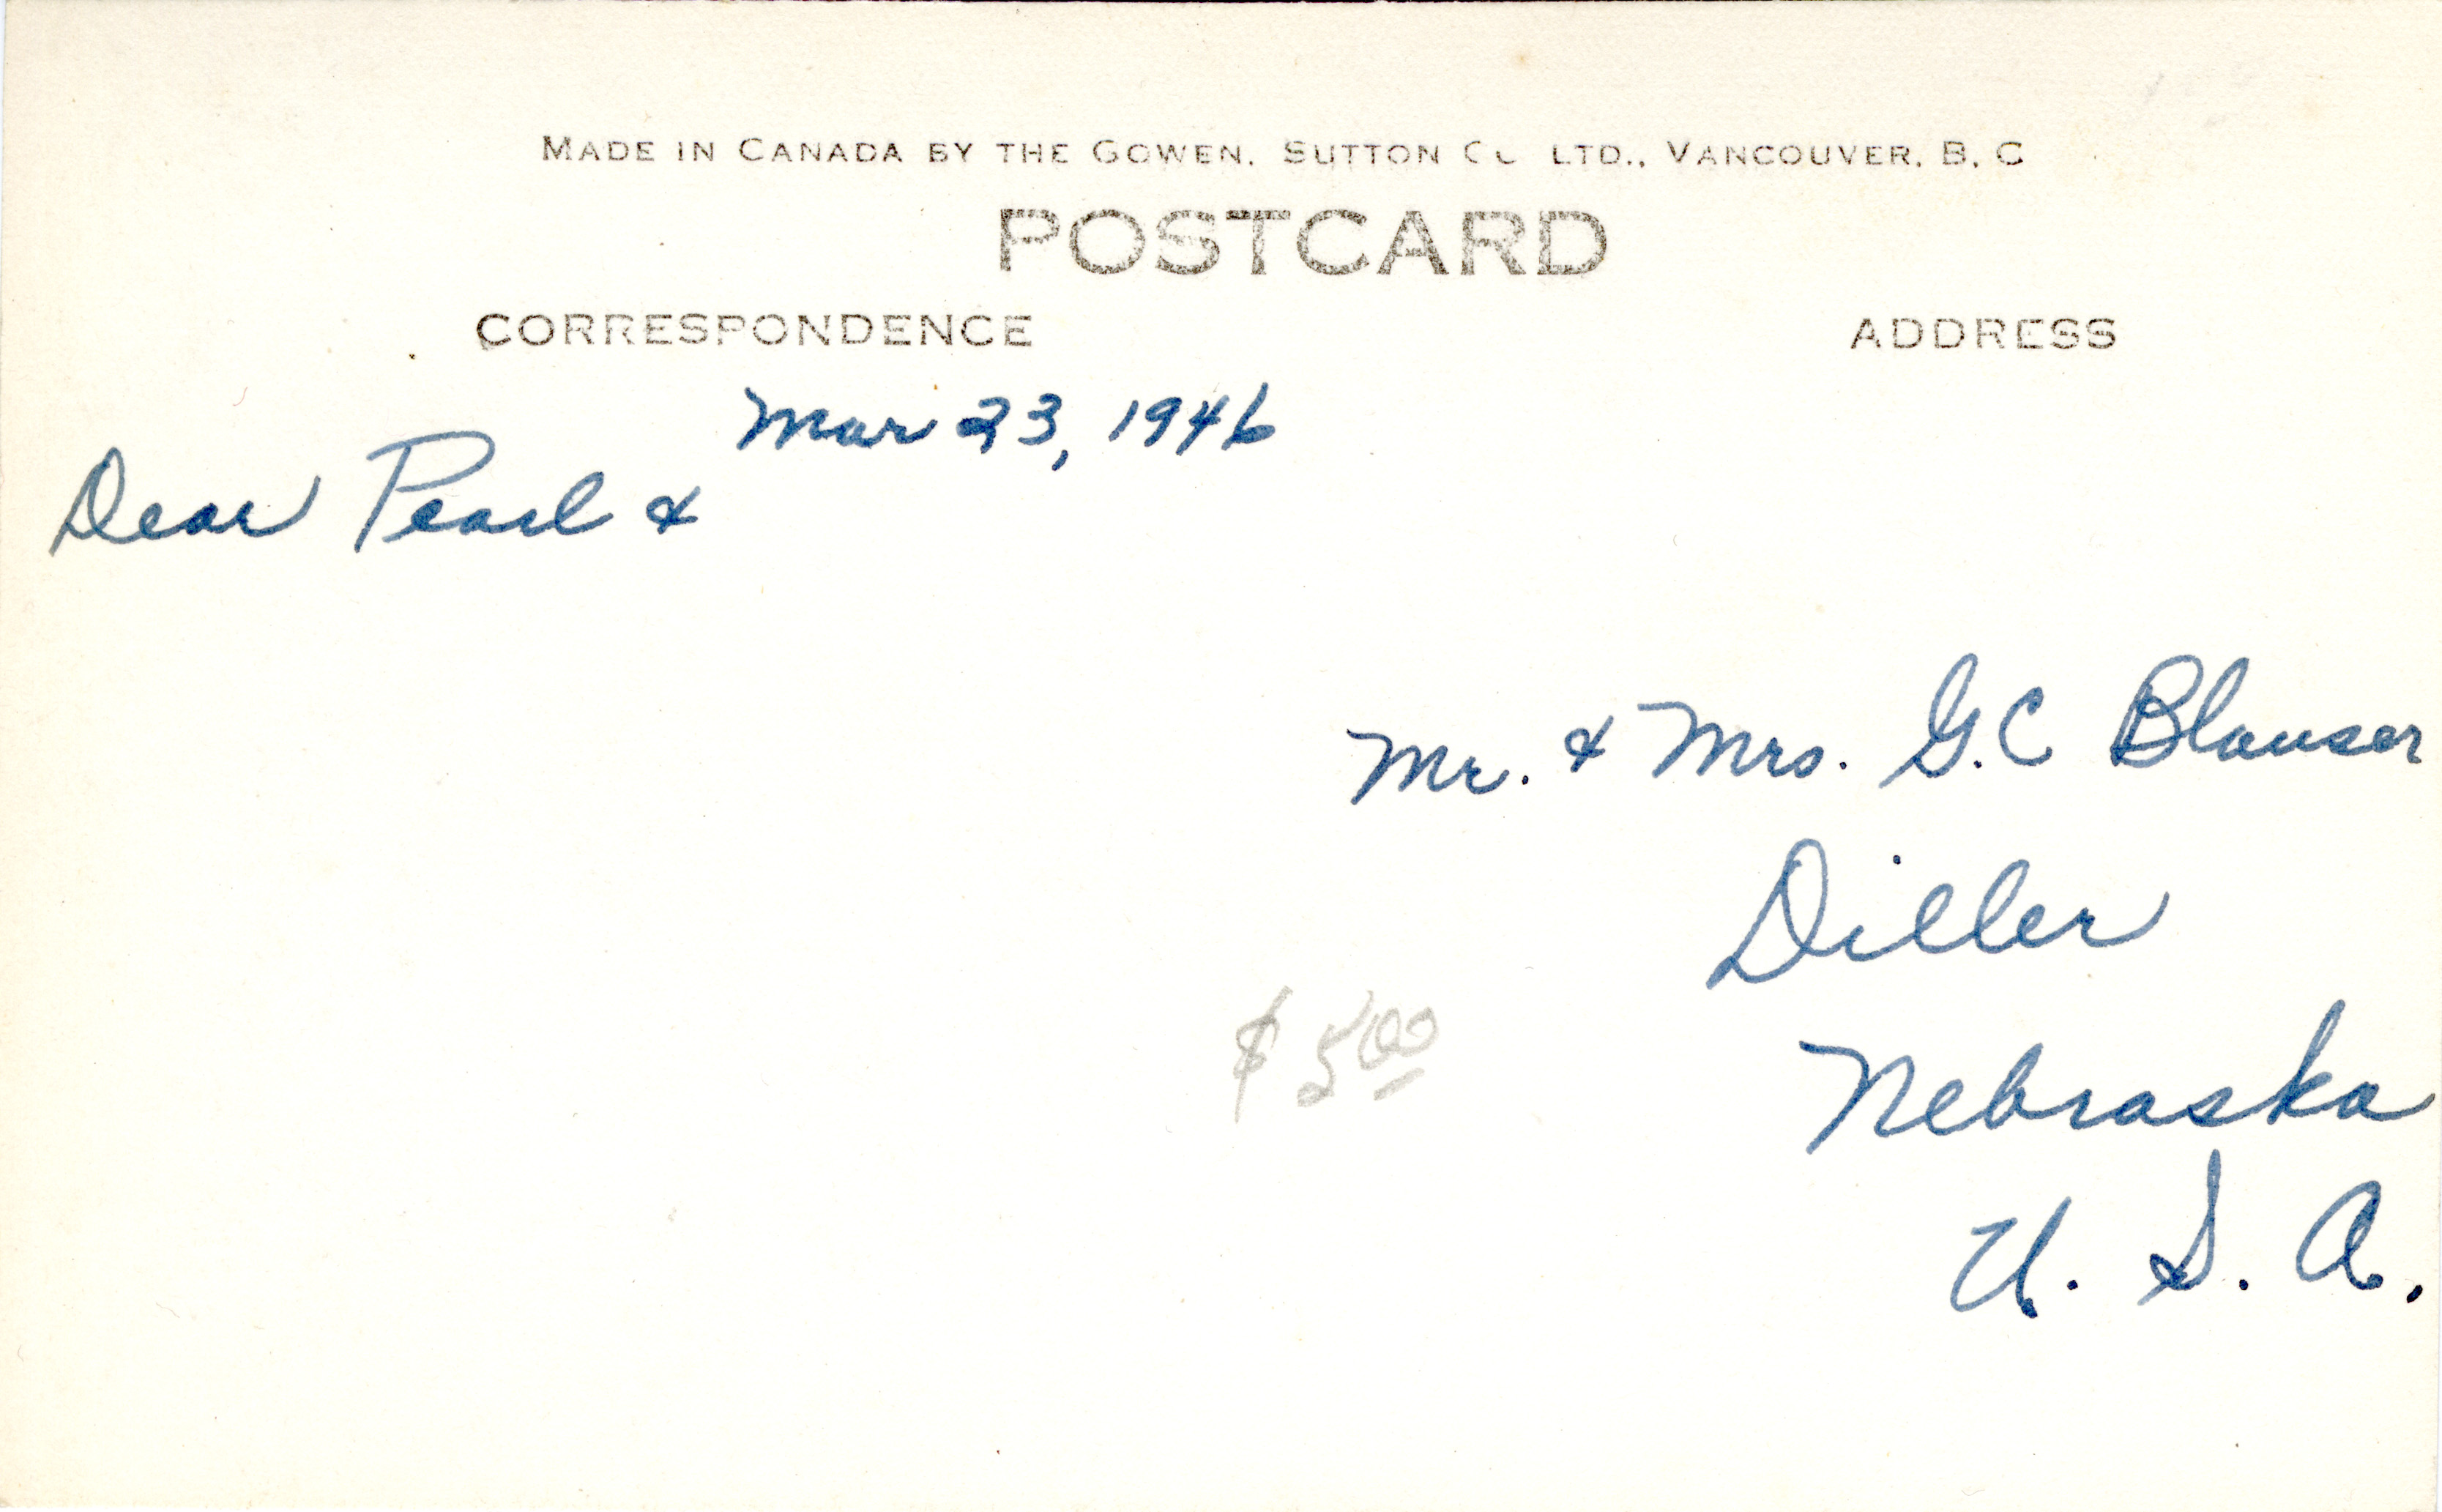 MADE IN CANADA BY THE GOWEN, SUTTON CO LTD., VANCOUVER, B, C
POSTCARD
CORRESPONDENCE
ADDRESS
Mar 23, 1946
Dear Pearl &
Mr. & Mrs. G.C Blauser
Diller
$5.00
Nebraska
U. S. A.